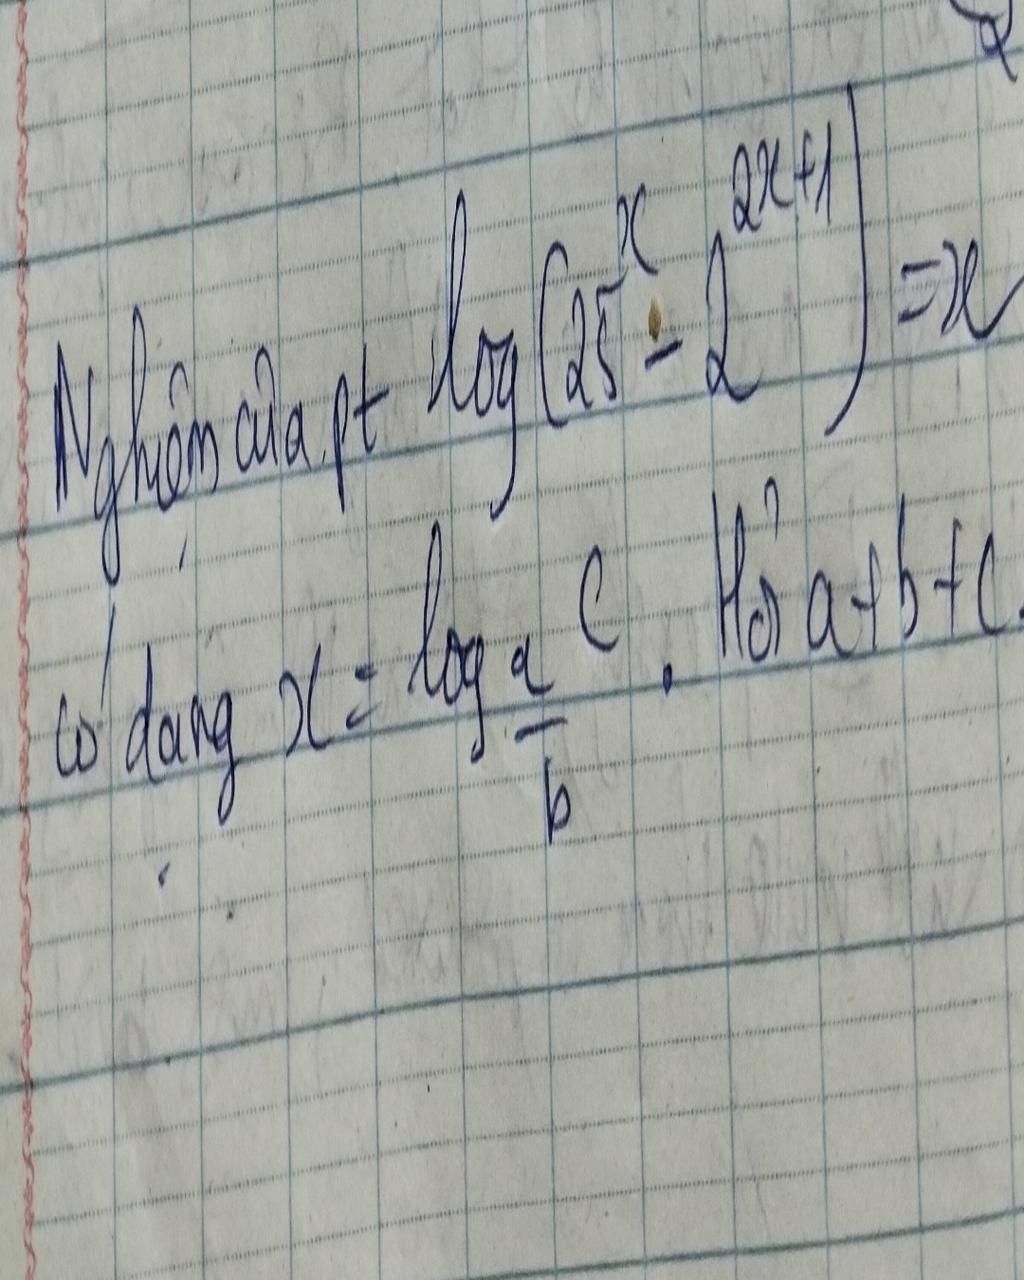 Nghiệm của pt log(25^x - 2^(2x+1)) = x
có dạng x = log_(a/b) c. Hỏi a+b+c.